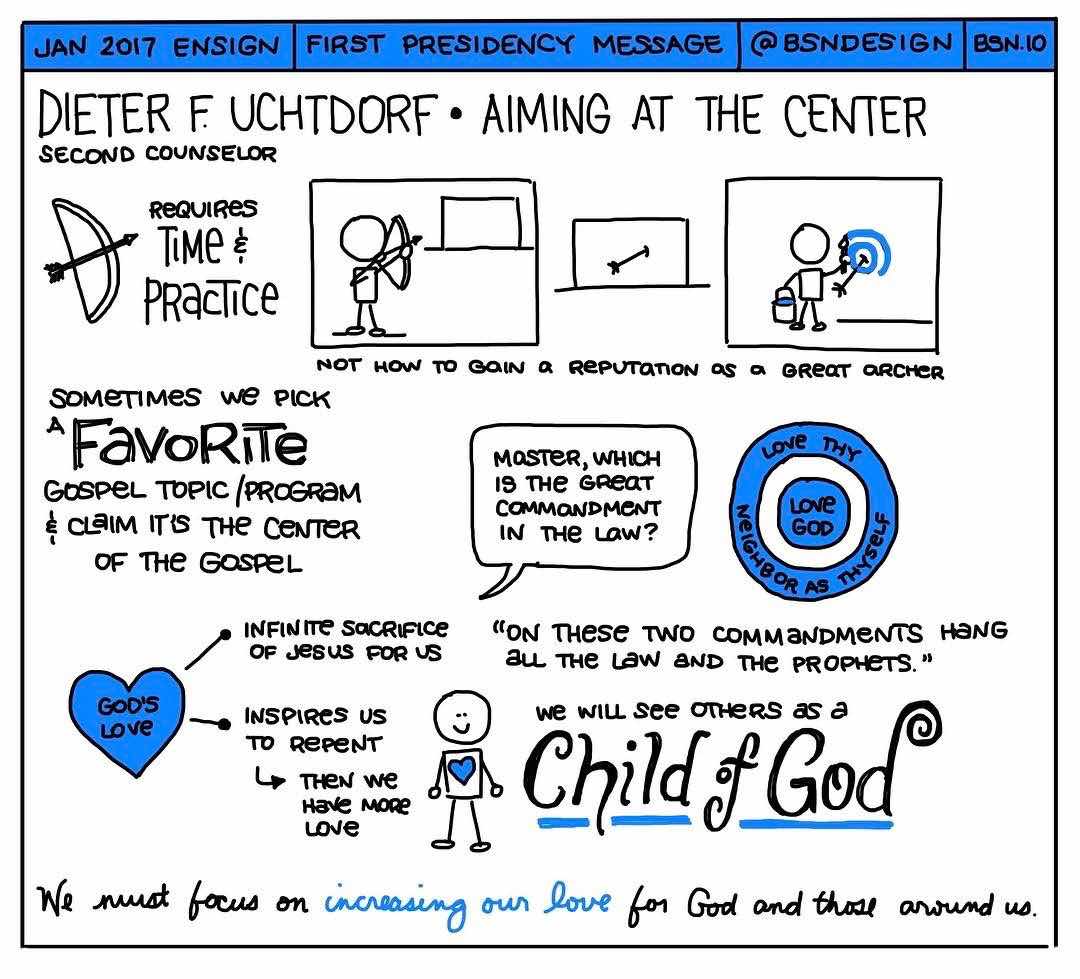 JAN 2017 ENSIGN FIRST PRESIDENCY MESSAGE @BSNDESIGN BSN.IO
DIETER F. UCHTDORF • AIMING AT THE CENTER
SECOND COUNSELOR
REQUIRES
TIME &
PRACTICE
NOT HOW TO GAIN A REPUTATION AS A GREAT ARCHER
SOMETIMES WE PICK
A FAVORITE
GOSPEL TOPIC/PROGRAM
& CLAIM IT'S THE CENTER
OF THE GOSPEL
MASTER, WHICH
IS THE GREAT
COMMANDMENT
IN THE LAW?
LOVE THY
NEIGHBOR AS THYSELF
LOVE
GOD
"ON THESE TWO COMMANDMENTS HANG
ALL THE LAW AND THE PROPHETS."
GOD'S
LOVE
INFINITE SACRIFICE
OF JESUS FOR US
INSPIRES US
TO REPENT
THEN WE
HAVE MORE
LOVE
WE WILL SEE OTHERS AS A
Child of God
We must focus on increasing our love for God and those around us.